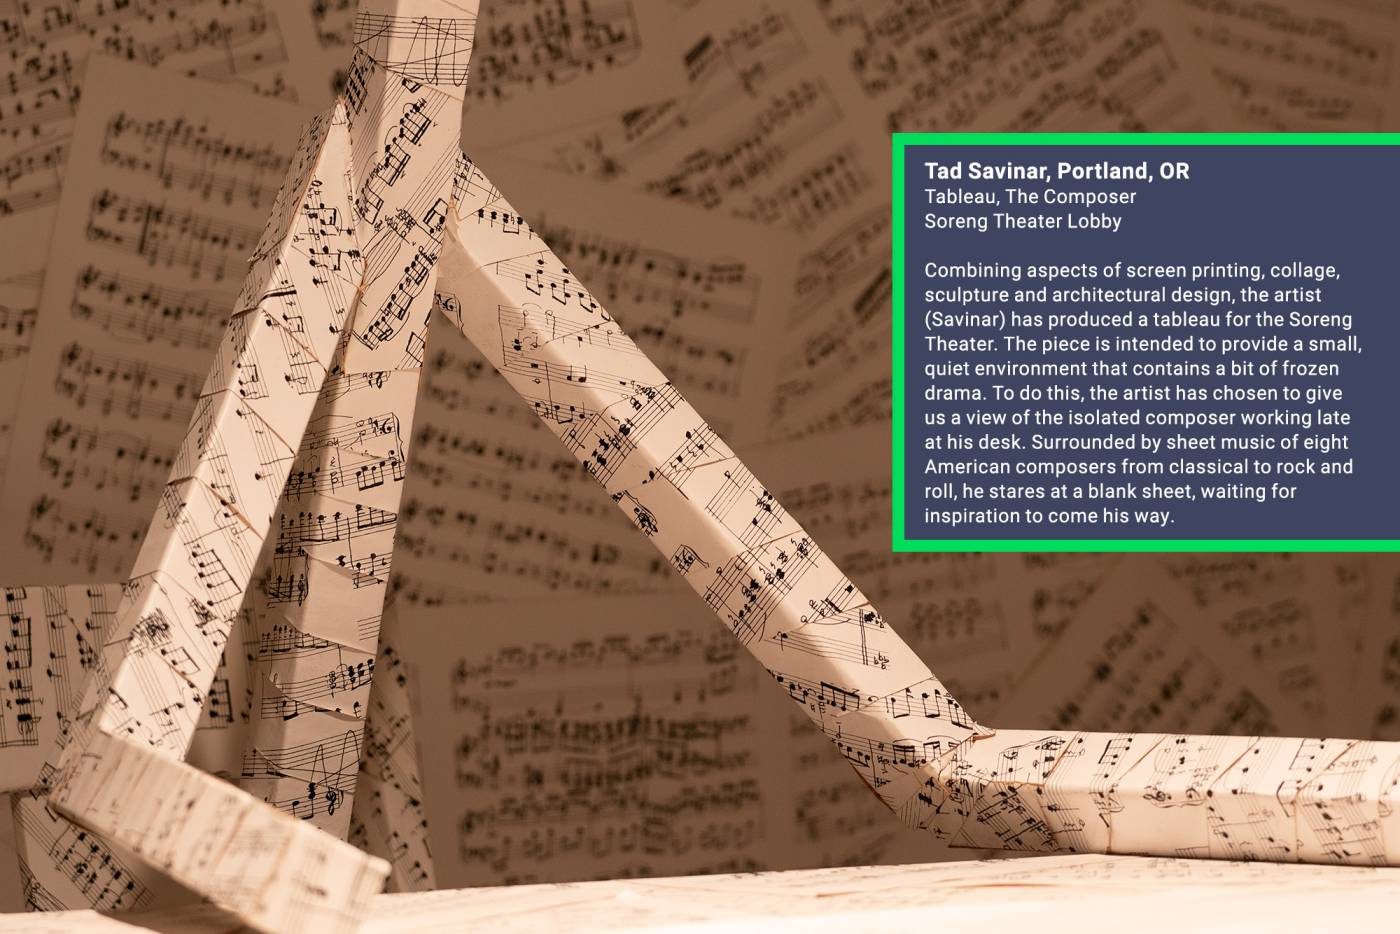 Tad Savinar, Portland, OR
Tableau, The Composer
Soreng Theater Lobby
Combining aspects of screen printing, collage,
sculpture and architectural design, the artist
(Savinar) has produced a tableau for the Soreng
Theater. The piece is intended to provide a small,
quiet environment that contains a bit of frozen
drama. To do this, the artist has chosen to give
us a view of the isolated composer working late
at his desk. Surrounded by sheet music of eight
American composers from classical to rock and
roll, he stares at a blank sheet, waiting for
inspiration to come his way.